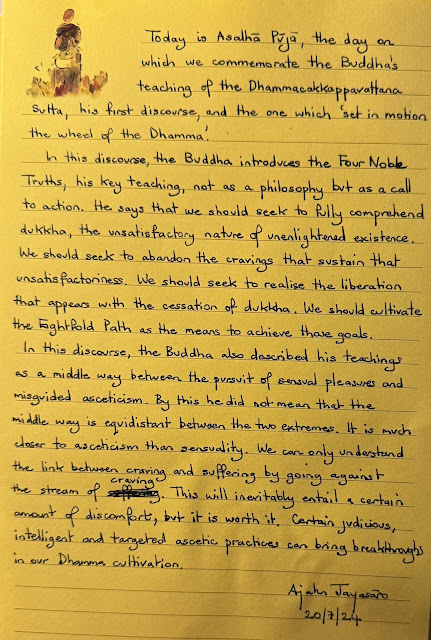 Today is Asalhā Pūjā, the day on
which we commemorate the Buddha's
teaching of the Dhammacakkappavattana
Sutta, his first discourse, and the one which 'set in motion
the wheel of the Dhamma'.
In this discourse, the Buddha introduces the Four Noble
Truths, his key teaching, not as a philosophy but as a call
to action. He says that we should seek to fully comprehend
dukkha, the unsatisfactory nature of unenlightened existence.
We should seek to abandon the cravings that sustain that
unsatisfactoriness. We should seek to realise the liberation
that appears with the cessation of dukkha. We should cultivate
the Eightfold Path as the means to achieve those goals.
In this discourse, the Buddha also described his teachings
as a middle way between the pursuit of sensual pleasures and
misguided asceticism. By this he did not mean that the
middle way is equidistant between the two extremes. It is much
closer to asceticism than sensuality. We can only understand
the link between craving and suffering by going against
the stream of craving. This will inevitably entail a certain
amount of discomfort, but it is worth it. Certain judicious,
intelligent and targeted ascetic practices can bring breakthroughs
in our Dhamma cultivation.
Ajahn Jayasaro
20/7/24